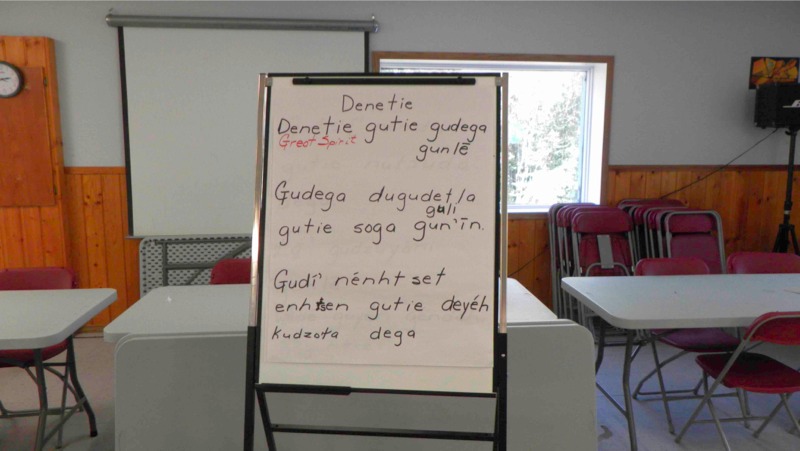 Denetie
Denetie gutie gudega
Great Spirit
gunlē
Gudega dugudetła
guli
gutie soga gun'īn.
Gudi' nénhtset
enhtsen gutie deyéh
kudzota dega